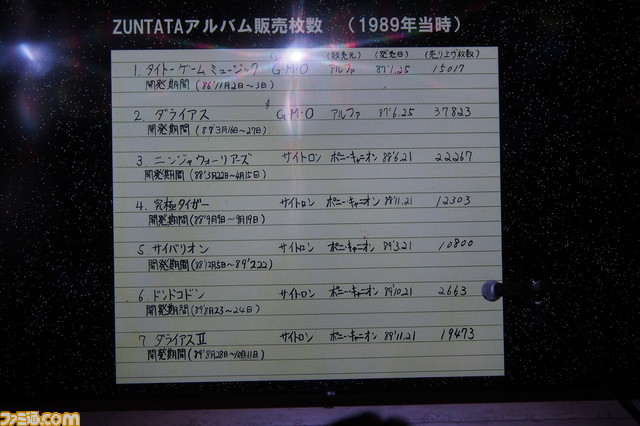 ZUNTATAアルバム販売枚数 (1989年当時)
(販売元) (発売日) (売り上げ枚数)
1. タイトーゲームミュージック G.M.O アルファ 87'1.25 15017
開発期間 (86'11月2日~3日)
2. ダライアス G.M.O アルファ 87'6.25 37823
開発期間 (87'3月16~27日)
3. ニンジャウォーリアーズ サイトロン ポニーキャニオン 88'6.21 22267
開発期間 (88'3月22日~4月15日)
4. 究極タイガー サイトロン ポニーキャニオン 88'11.21 12303
開発期間 (88'9月9日~9月19日)
5 サイバリオン サイトロン ポニーキャニオン 89'3.21 10800
開発期間 (88'12月5日~89'2.22)
6. ドンドコドン サイトロン ポニーキャニオン 89'10.21 2663
開発期間 (89'8月23~24日)
7 ダライアスII サイトロン ポニーキャニオン 89'11.21 19473
開発期間 (89'8月28日~10月11日)
ファミ通.com